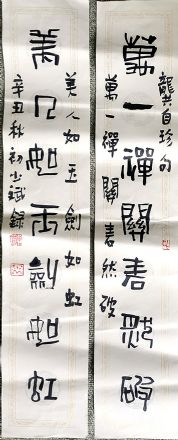 龔自珍句
萬一禪關砉然破
萬一禪關砉然破
美人如玉劍如虹
美人如玉劍如虹
辛丑秋初少斌錄